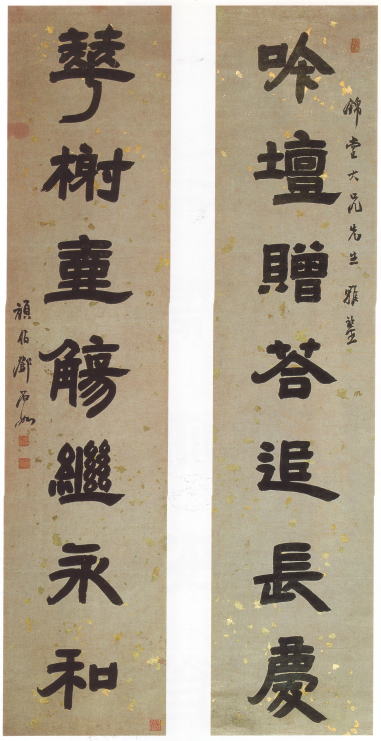 錦堂大兄先生雅鑒
吟壇贈荅追長慶
華榭觴繼永和
頑伯鄧石如